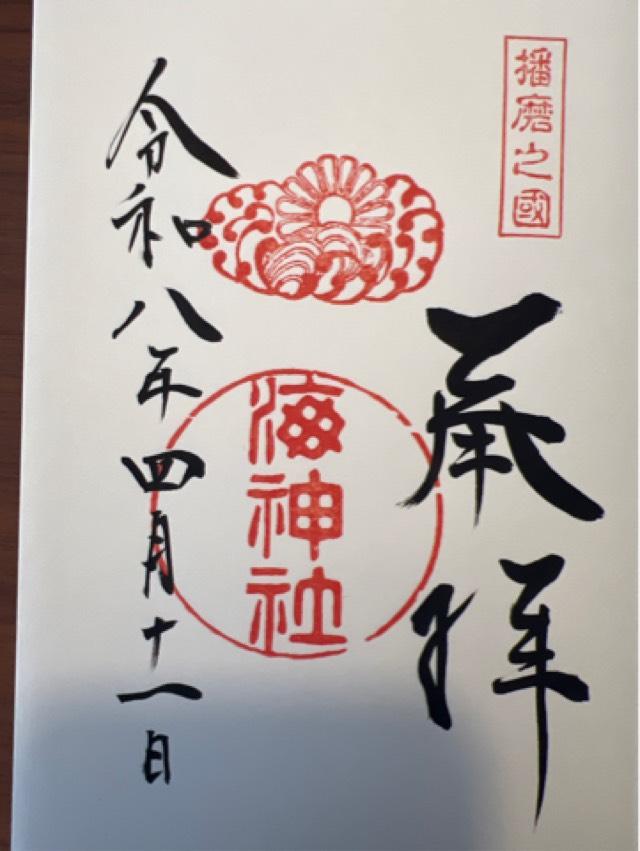 播磨之國
奉拝
海神社
令和八年四月十一日